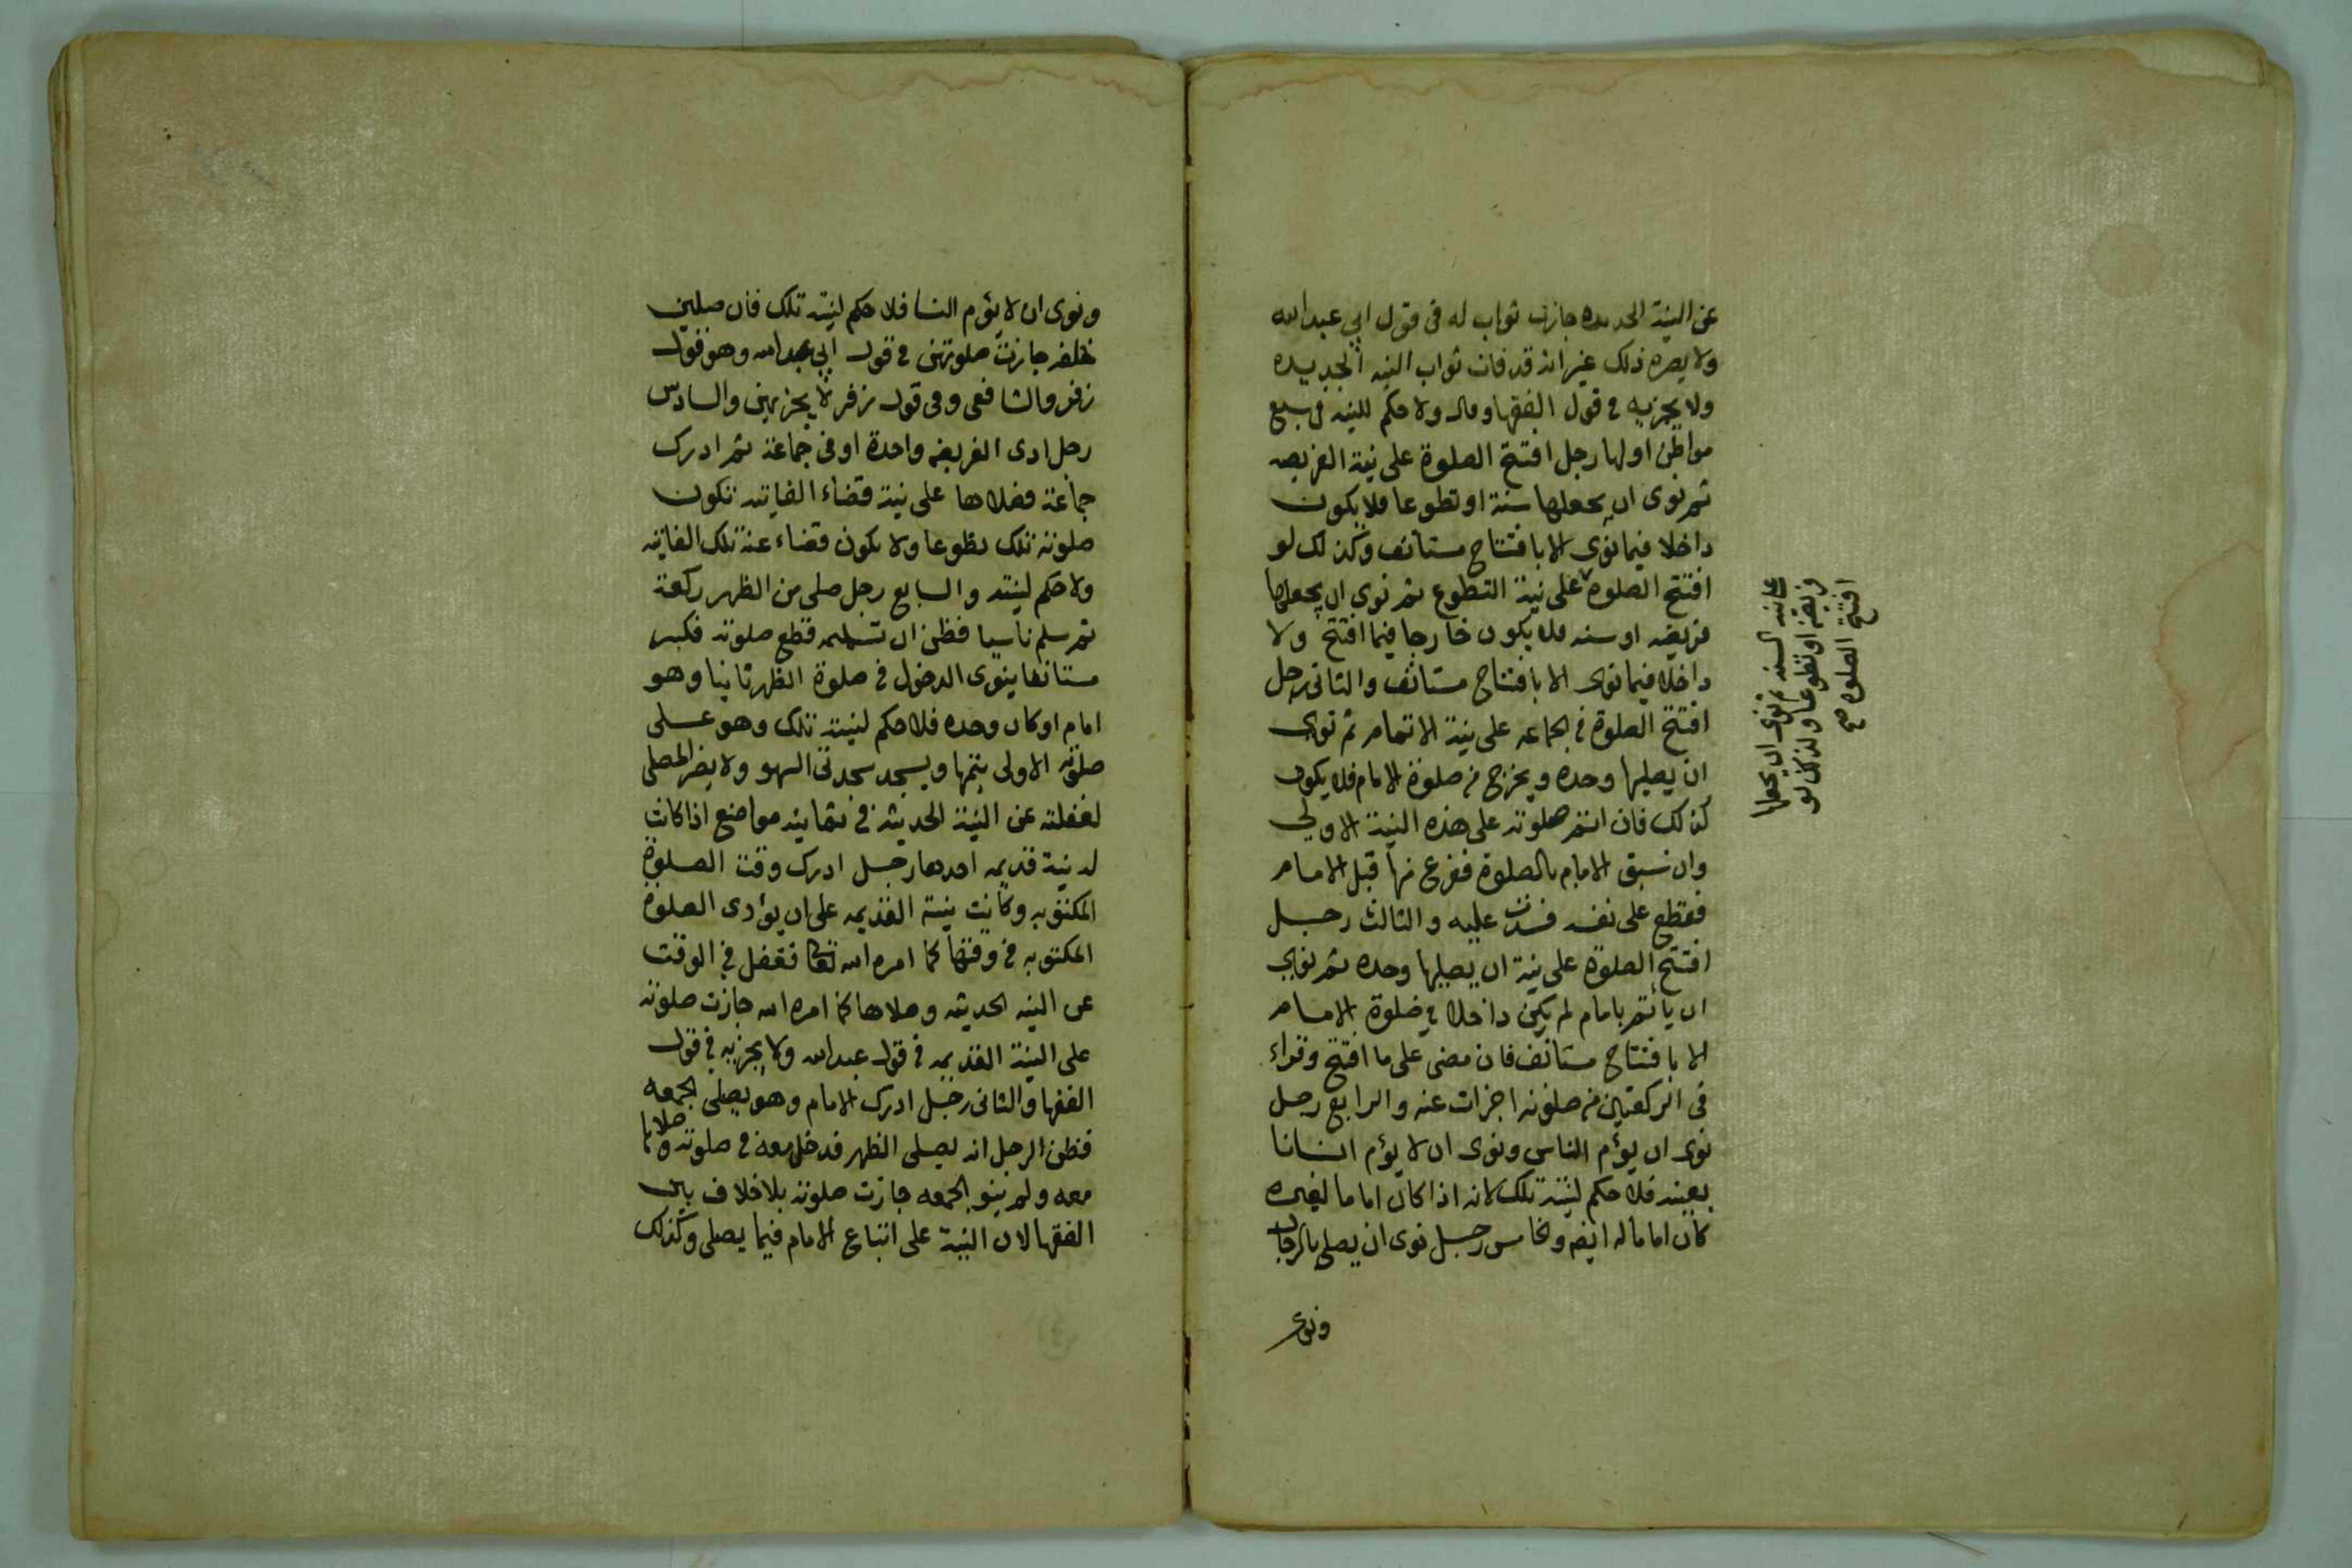 عن النية الحديده جازت ثواب له فى قول ابي عبدالله
ولا يضره ذلك غير انه قد فات ثواب النيه الجديده
ولا يجزيه في قول الفقها وقال ولا حكم للنيه فى سبع
مواطن اولها رجل افتتح الصلوة على نية الفريضه
ثم نوى ان يجعلها سنة او تطوعا فلا يكون
داخلا فيما نوى الا بافتتاح مستانف وكذلك لو
افتتح الصلوة على نية التطوع ثم نوى ان يجعلها
فريضه او سنه فلا يكون خارجا فيما افتتح ولا
داخلا فيما نوى الا بافتتاح مستانف والثانى رجل
افتتح الصلوة فى الجماعه على نية الاتمام ثم نوى
ان يصليها وحده ويخرج من صلوة الامام فلا يكون
كذلك فان اتم صلوته على هذه النية الاولي
وان سبق الامام بالصلوة ففرغ منها قبل الامام
فقطع على نفسه فسدت عليه والثالث رجل
افتتح الصلوة على نية ان يصليها وحده ثم نوى
ان يأتم بامام لم يكن داخلا في صلوة الامام
الا بافتتاح مستانف فان مضى على ما افتتح وقراء
فى الركعتين من صلوته اجزات عنه والرابع رجل
نوى ان يؤم الناس ونوى ان لا يؤم انسانا
بعينه فلا حكم لنيته تلك لانه اذا كان اماما لغيره
كان اماما له ايضه والخامس رجل نوى ان يصلى بالرجال
ونوى
على نية السنه ثم نوى ان يجعلها
فريضة او تطوعا وكذلك لو
افتتح الصلوه صح
ونوى ان لا يؤم النسا فلا حكم لنيته تلك فان صلين
خلفه جازت صلوتهن في قول ابي عبدالله وهو قول
زفر والشافعى وفى قول زفر لا يجزيهن والسادس
رجل ادى الفريضه واحدة او فى جماعة ثم ادرك
جماعة فصلاها على نية قضاء الفايته تكون
صلوته تلك تطوعا ولا يكون قضاء عنه تلك الفايته
ولا حكم لنيته والسابع رجل صلى من الظهر ركعة
ثم سلم ناسيا فظن ان تسليمه قطع صلوته فكبر
مستانفا ينوى الدخول فى صلوة الظهر ثانيا وهو
امام او كان وحده فلا حكم لنيته تلك وهو على
صلوته الاولى يتمها ويسجد سجدتى السهو ولا يضر المصلى
لغفلته عن النية الحديثه فى ثمانيه مواضع اذا كانت
له نية قديمه احدها رجل ادرك وقت الصلوة
المكتوبه وكانت نيته القديمه على ان يؤدى الصلوة
المكتوبه فى وقتها كما امره الله تعا فغفل في الوقت
عن النيه الحديثه وصلاها كما امره الله جازت صلوته
على النية القديمه فى قول عبدالله ولا يجزيه فى قول
الفقها والثانى رجل ادرك الامام وهو يصلى الجمعه
فظن الرجل انه يصلى الظهر فدخل معه في صلوته وصلاها
معه ولم ينو الجمعه جازت صلوته بلا خلاف بين
الفقها لان النية على اتباع الامام فيما يصلى وكذلك